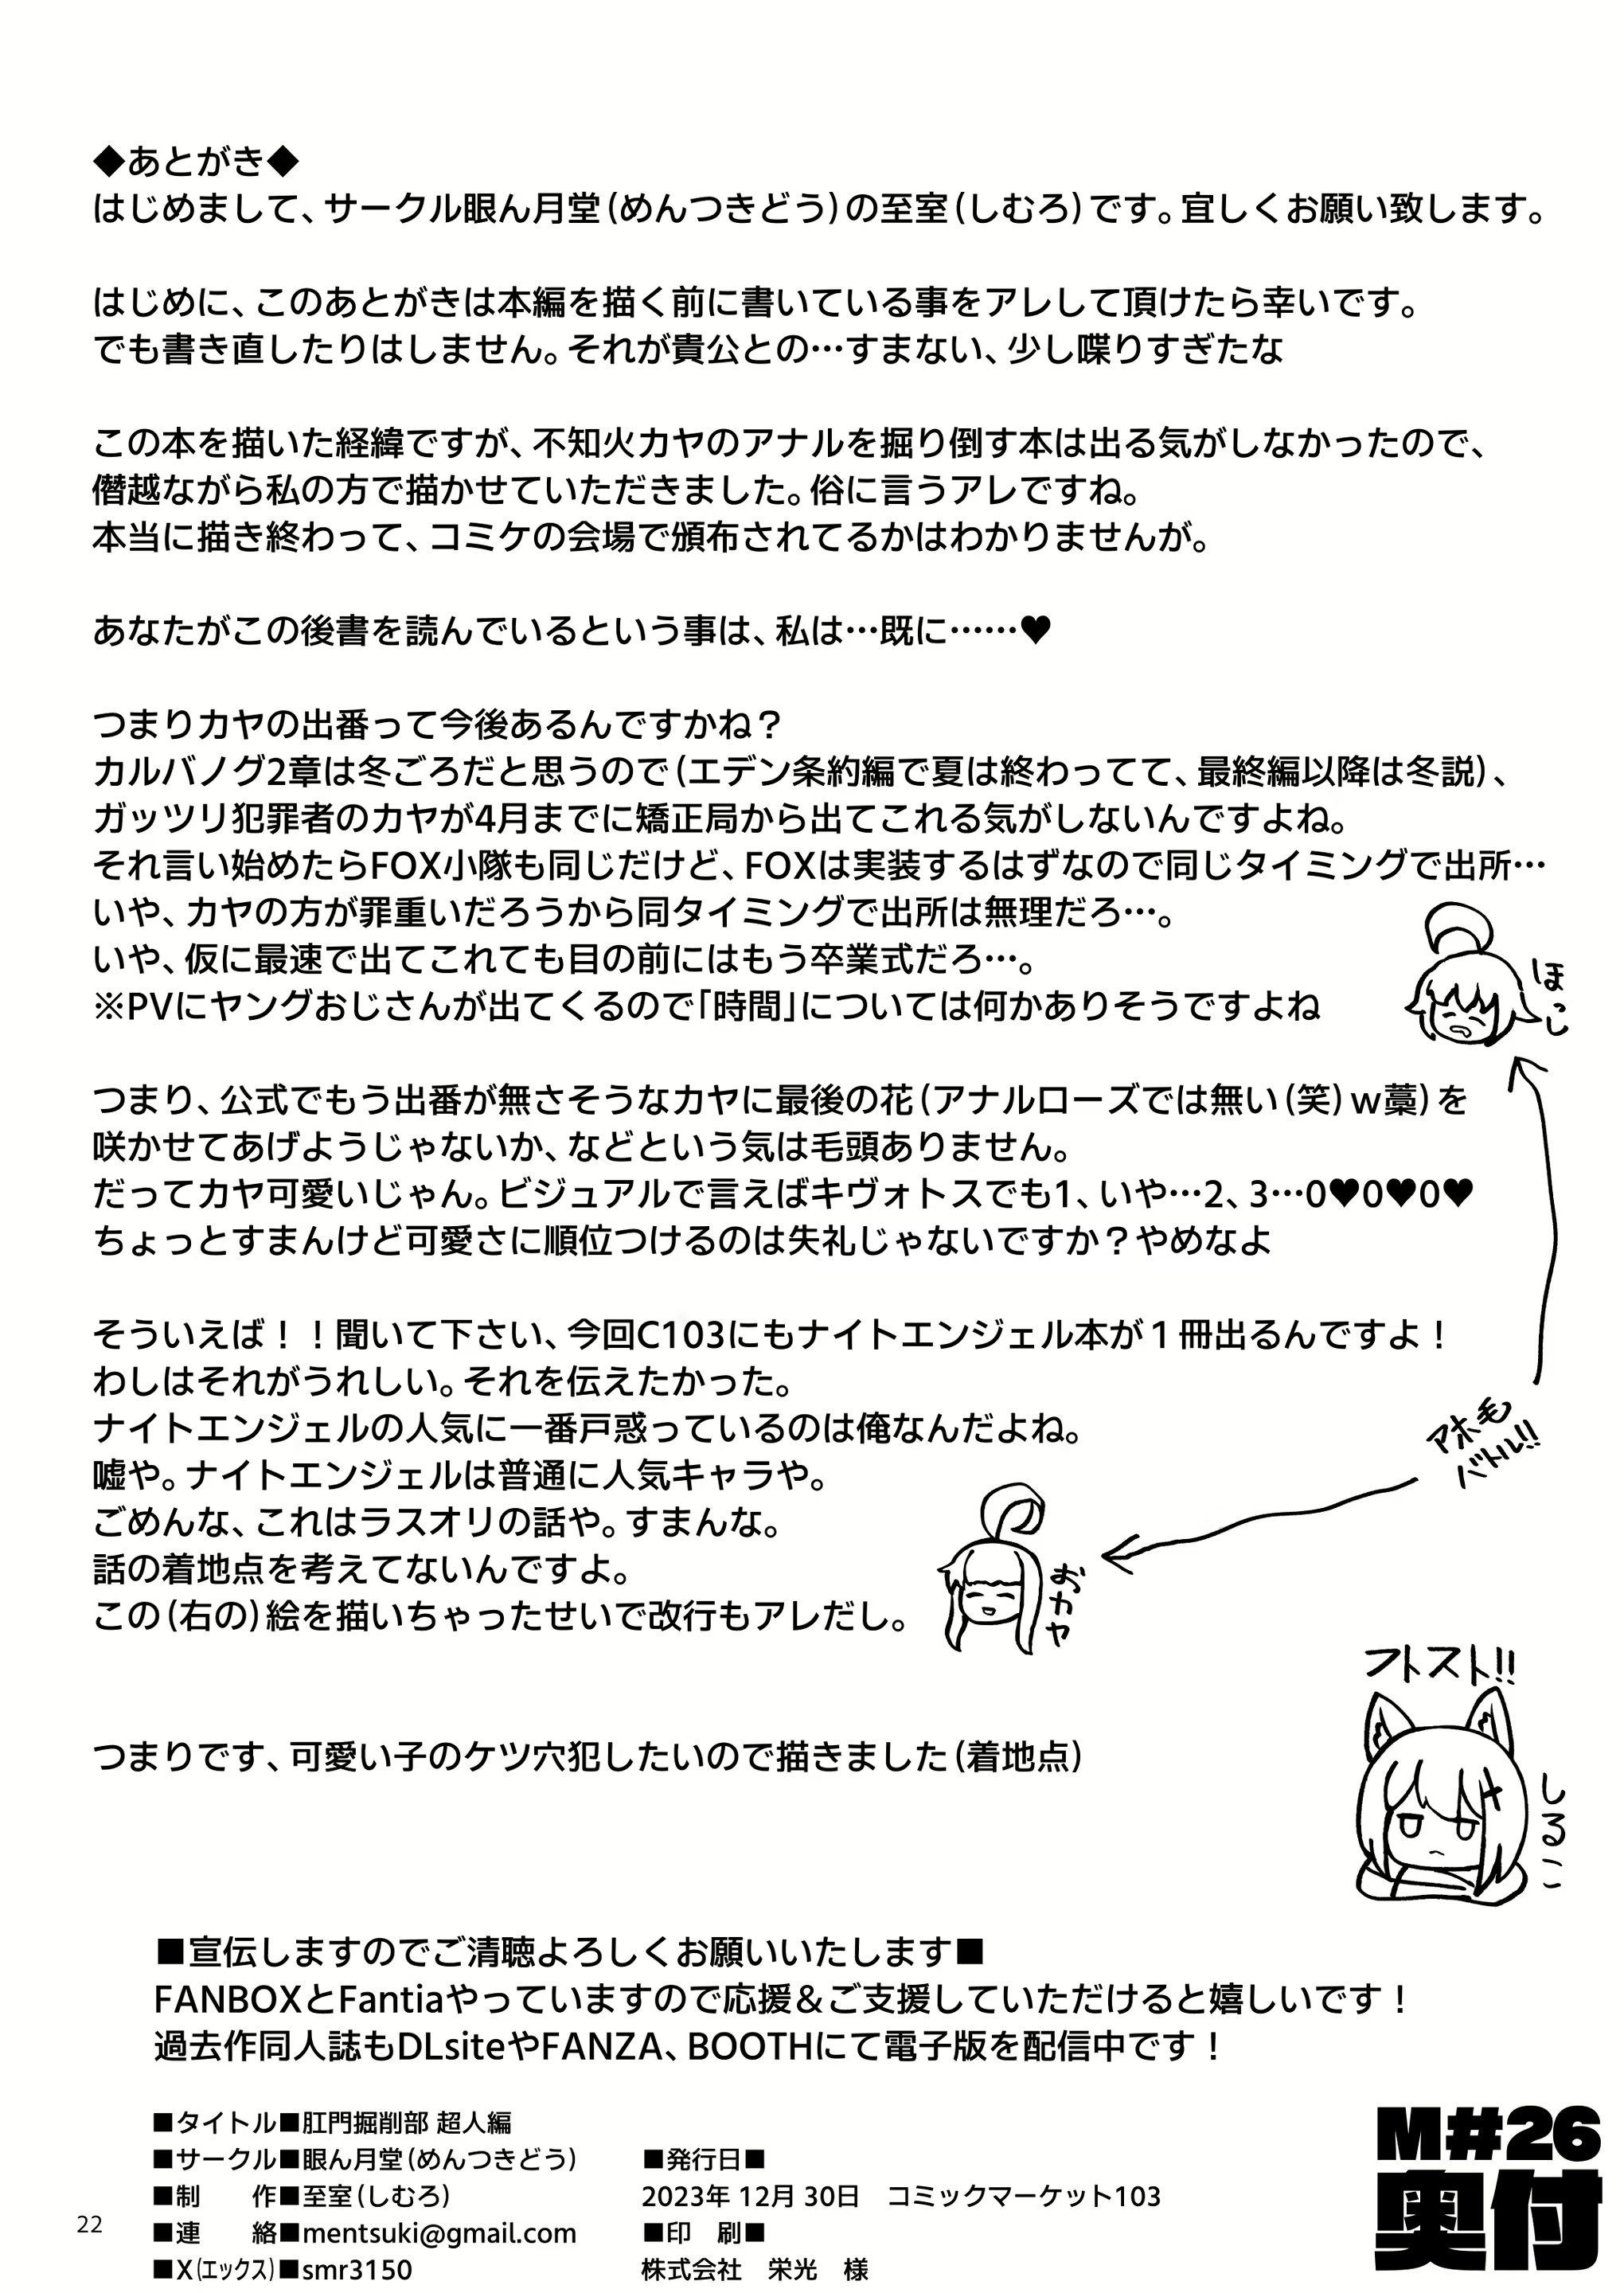 ◆あとがき◆
はじめまして、サークル眼ん月堂（めんつきどう）の至室（しむろ）です。宜しくお願い致します。
はじめに、このあとがきは本編を描く前に書いている事をアレして頂けたら幸いです。
でも書き直したりはしません。それが貴公との…すまない、少し喋りすぎたな
この本を描いた経緯ですが、不知火カヤのアナルを掘り倒す本は出る気がしなかったので、
僭越ながら私の方で描かせていただきました。俗に言うアレですね。
本当に描き終わって、コミケの会場で頒布されてるかはわかりませんが。
あなたがこの後書を読んでいるという事は、私は…既に……♥
つまりカヤの出番って今後あるんですかね？
カルバノグ2章は冬ごろだと思うので（エデン条約編で夏は終わってて、最終編以降は冬説）、
ガッツリ犯罪者のカヤが4月までに矯正局から出てこれる気がしないんですよね。
それ言い始めたらFOX小隊も同じだけど、FOXは実装するはずなので同じタイミングで出所…
いや、カヤの方が罪重いだろうから同タイミングで出所は無理だろ…。
いや、仮に最速で出てこれても目の前にはもう卒業式だろ…。
※PVにヤングおじさんが出てくるので「時間」については何かありそうですよね
ほっし
つまり、公式でもう出番が無さそうなカヤに最後の花（アナルローズでは無い（笑）ｗ藁）を
咲かせてあげようじゃないか、などという気は毛頭ありません。
だってカヤ可愛いじゃん。ビジュアルで言えばキヴォトスでも1、いや…2、3…0♥0♥0♥
ちょっとすまんけど可愛さに順位つけるのは失礼じゃないですか？やめなよ
そういえば！！聞いて下さい、今回C103にもナイトエンジェル本が１冊出るんですよ！
わしはそれがうれしい。それを伝えたかった。
ナイトエンジェルの人気に一番戸惑っているのは俺なんだよね。
嘘や。ナイトエンジェルは普通に人気キャラや。
ごめんな、これはラスオリの話や。すまんな。
話の着地点を考えてないんですよ。
この（右の）絵を描いちゃったせいで改行もアレだし。
アホ毛
バトル!!
おカヤ
フトスト!!
しるこ
つまりです、可愛い子のケツ穴犯したいので描きました（着地点）
■宣伝しますのでご清聴よろしくお願いいたします■
FANBOXとFantiaやっていますので応援＆ご支援していただけると嬉しいです！
過去作同人誌もDLsiteやFANZA、BOOTHにて電子版を配信中です！
■タイトル■肛門掘削部 超人編
■サークル■眼ん月堂（めんつきどう）
■制　　作■至室（しむろ）
■連　　絡■mentsuki@gmail.com
■X（エックス）■smr3150
■発行日■
2023年 12月 30日　コミックマーケット103
■印　刷■
株式会社　栄光　様
M#26
奥付
22